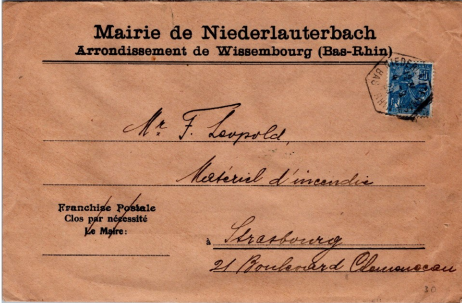 Mairie de Niederlauterbach
Arrondissement de Wissembourg (Bas-Rhin)
Mr F. Leopold,
Matériel d'incendie
Franchise Postale
Clos par nécessité
Le Maire:
à Strasbourg
21 Boulevard Clemenceau